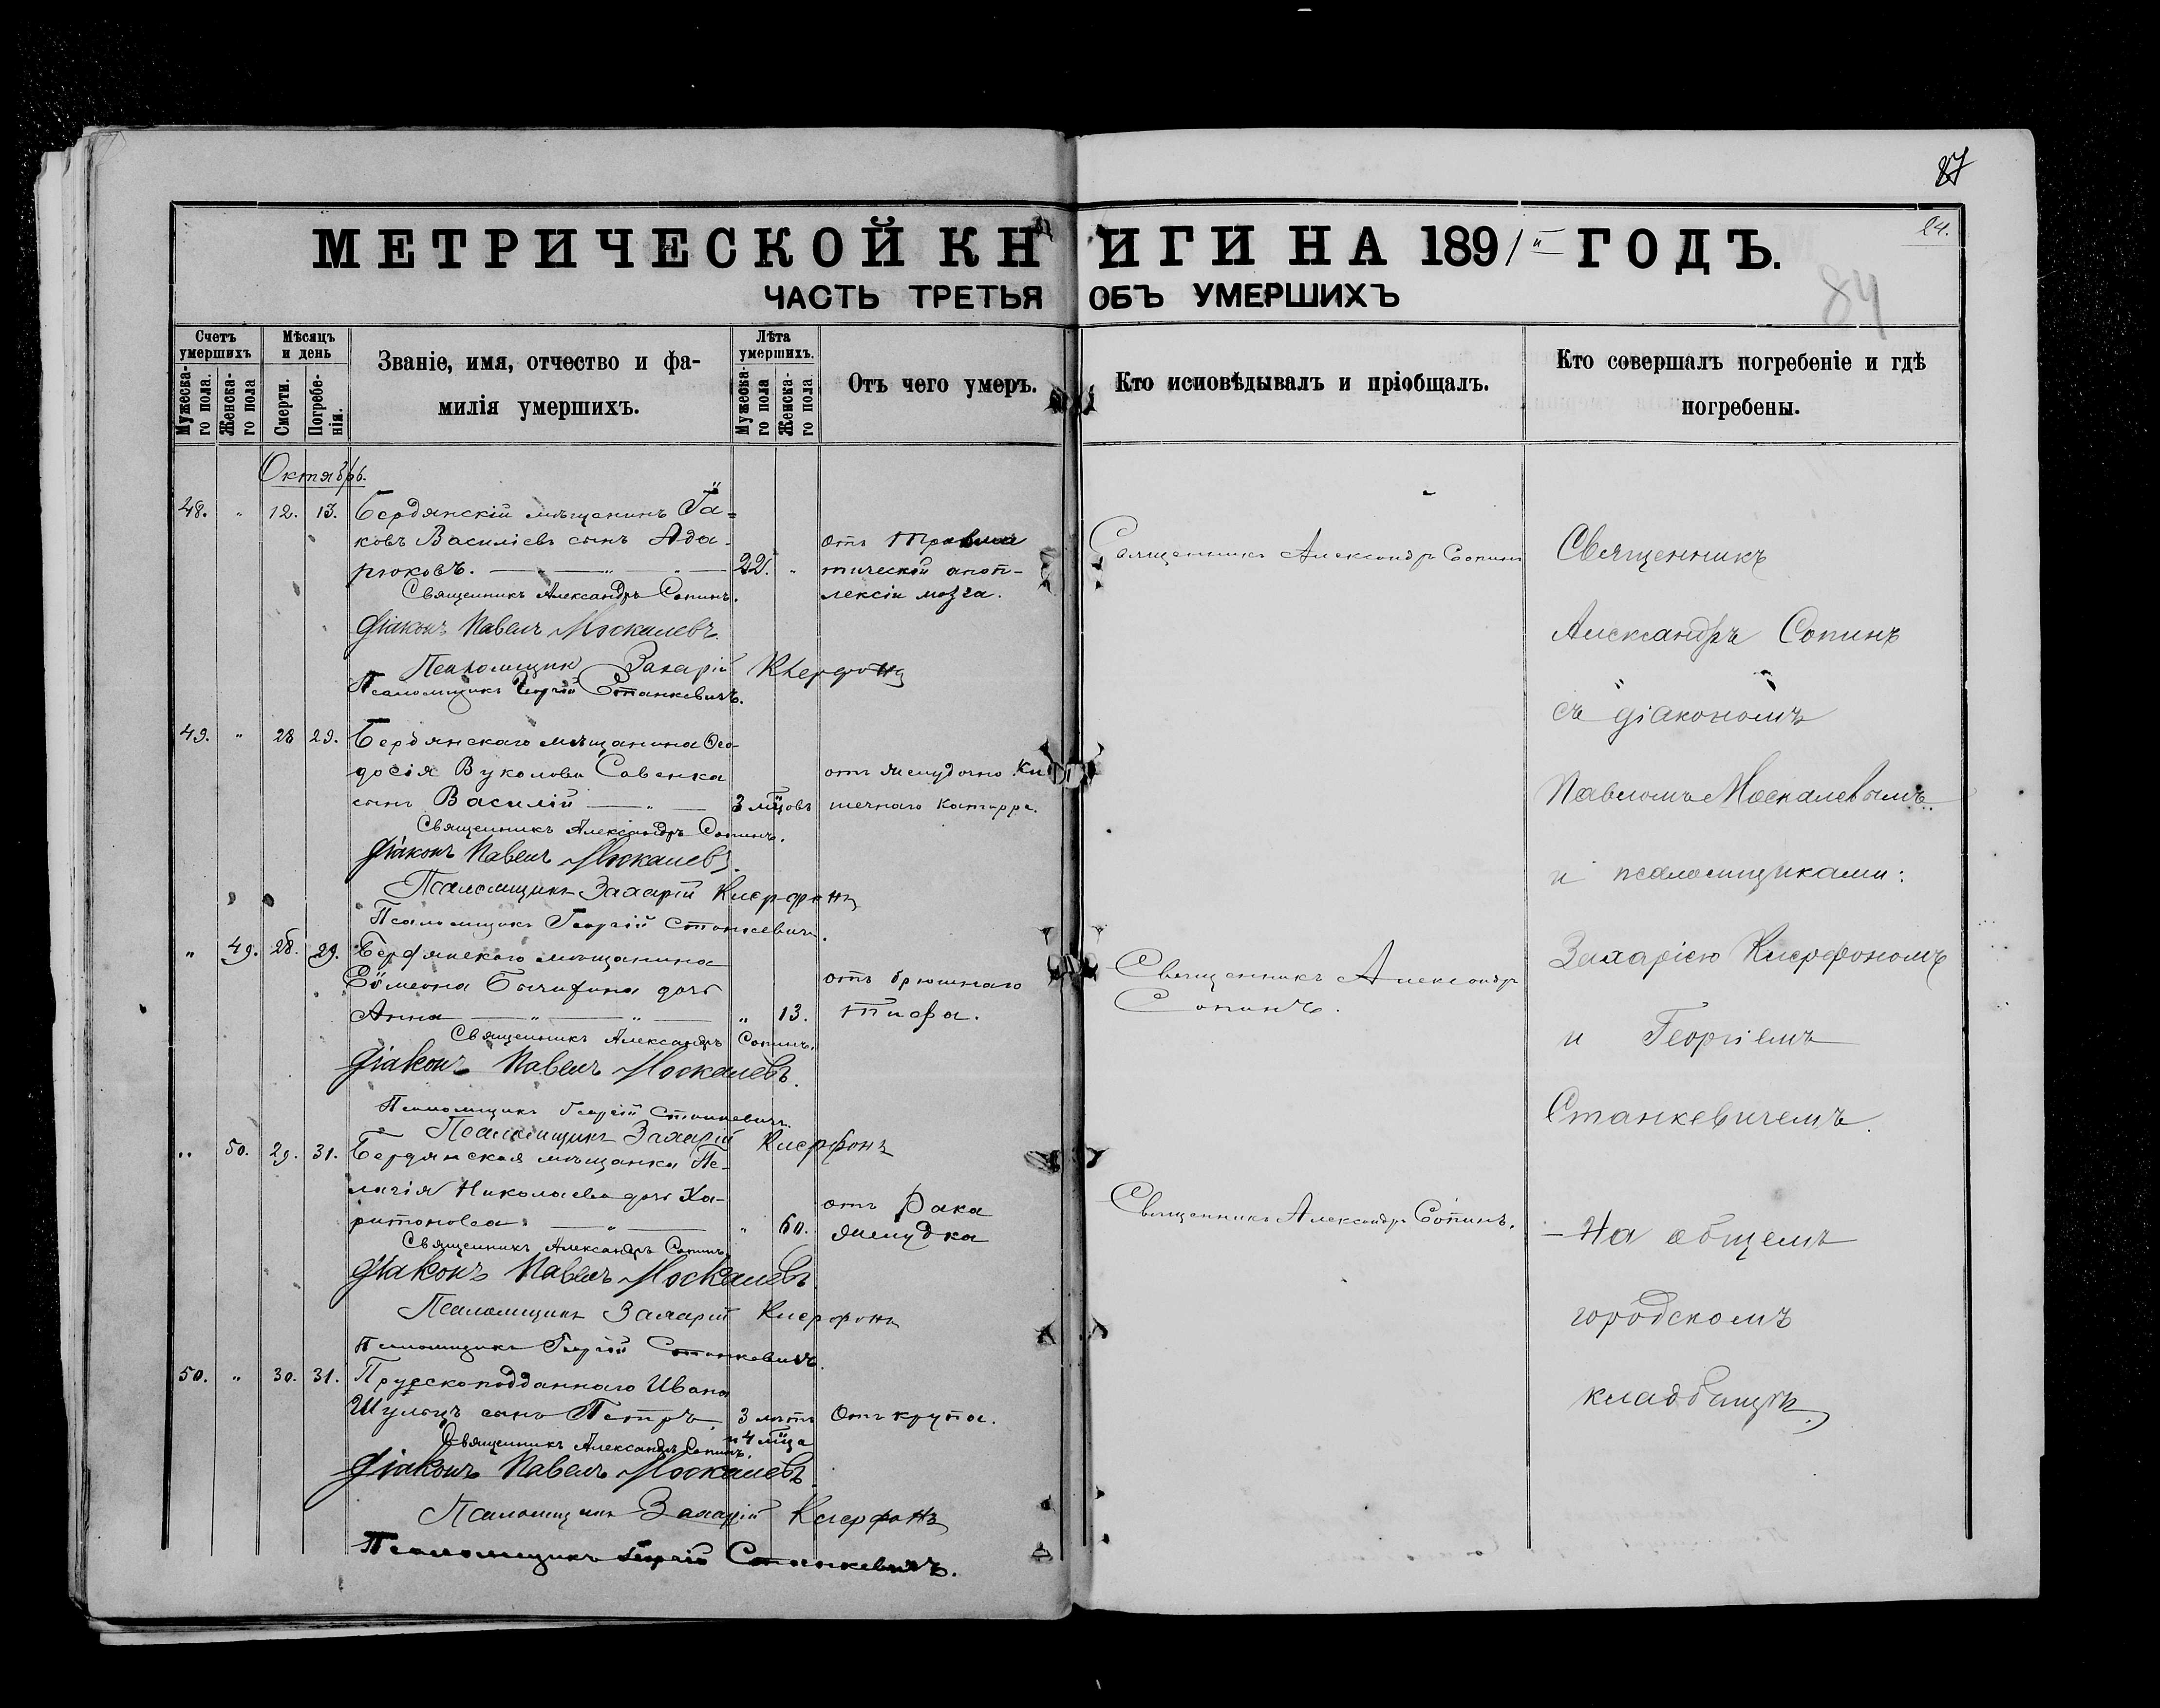 87
МЕТРИЧЕСКОЙ КНИГИ НА 1891й ГОДЪ.
24.
84
ЧАСТЬ ТРЕТЬЯ ОБЪ УМЕРШИХЪ
Счетъ умершихъ
Мужеска-го пола.
Женска-го пола
Мѣсяцъ и день
Смерти.
Погребе-нія.
Званіе, имя, отчество и фа-
милія умершихъ.
Лѣта умершихъ.
Мужеска-го пола
Женска-го пола.
Отъ чего умеръ.
Кто исповѣдывалъ и пріобщалъ.
Кто совершалъ погребеніе и гдѣ
погребены.
Октябрь.
48. " 12. 13. Бердянскій мѣщанинъ Iа=
ковъ Василіевъ сынъ Ада-
рюковъ. 22. "
отъ травма
тической апоп-
лексіи мозга.
Священникъ Александръ Сопинъ
Священникъ Александръ Сопинъ.
Діаконъ Павелъ Москалевъ.
Псаломщикъ Захарій Клерфонъ
Псаломщикъ Георгій Станкевичъ.
49. " 28 29. Бердянскаго мѣщанина Ѳео-
досія Вуколова Савенка
сынъ Василій 3 мѣцовъ
отъ желудочно ки
шечнаго катарра.
Священникъ Александръ Сопинъ.
Діаконъ Павелъ Москалевъ.
Псаломщикъ Захарій Клерфонъ
Псаломщикъ Георгій Станкевичъ.
" 49. 28. 29. Бердянскаго мѣщанина
Сѵмеона дочь
Анна " 13.
отъ брюшнаго
тифа.
Священникъ Александръ
Сопинъ.
Священникъ Александръ Сопинъ.
Діаконъ Павелъ Москалевъ.
Псаломщикъ Георгій Станкевичъ.
Псаломщикъ Захарій Клерфонъ
" 50. 29. 31. Бердянская мѣщанка Пе-
лагія Николаева дочь Ха-
ритонова. " 60.
отъ рака
желудка
Священникъ Александръ Сопинъ.
Священникъ Александръ Сопинъ.
Діаконъ Павелъ Москалевъ
Псаломщикъ Захарій Клерфонъ
Псаломщикъ Георгій Станкевичъ.
50. " 30. 31. Прусскоподданнаго Ивана
Шульцъ сынъ Петръ. 3 лѣтъ Отъ крупа.
и 4 мѣца
Священникъ Александръ Сопинъ.
Діаконъ Павелъ Москалевъ.
Псаломщикъ Захарій Клерфонъ
Псаломщикъ Георгій Станкевичъ.
Священникъ
Александръ Сопинъ
съ діакономъ
Павломъ Москалевымъ.
и псаломщиками:
Захаріею Клерфономъ
и Георгіемъ
Станкевичемъ.
На общемъ
городскомъ
кладбищѣ.